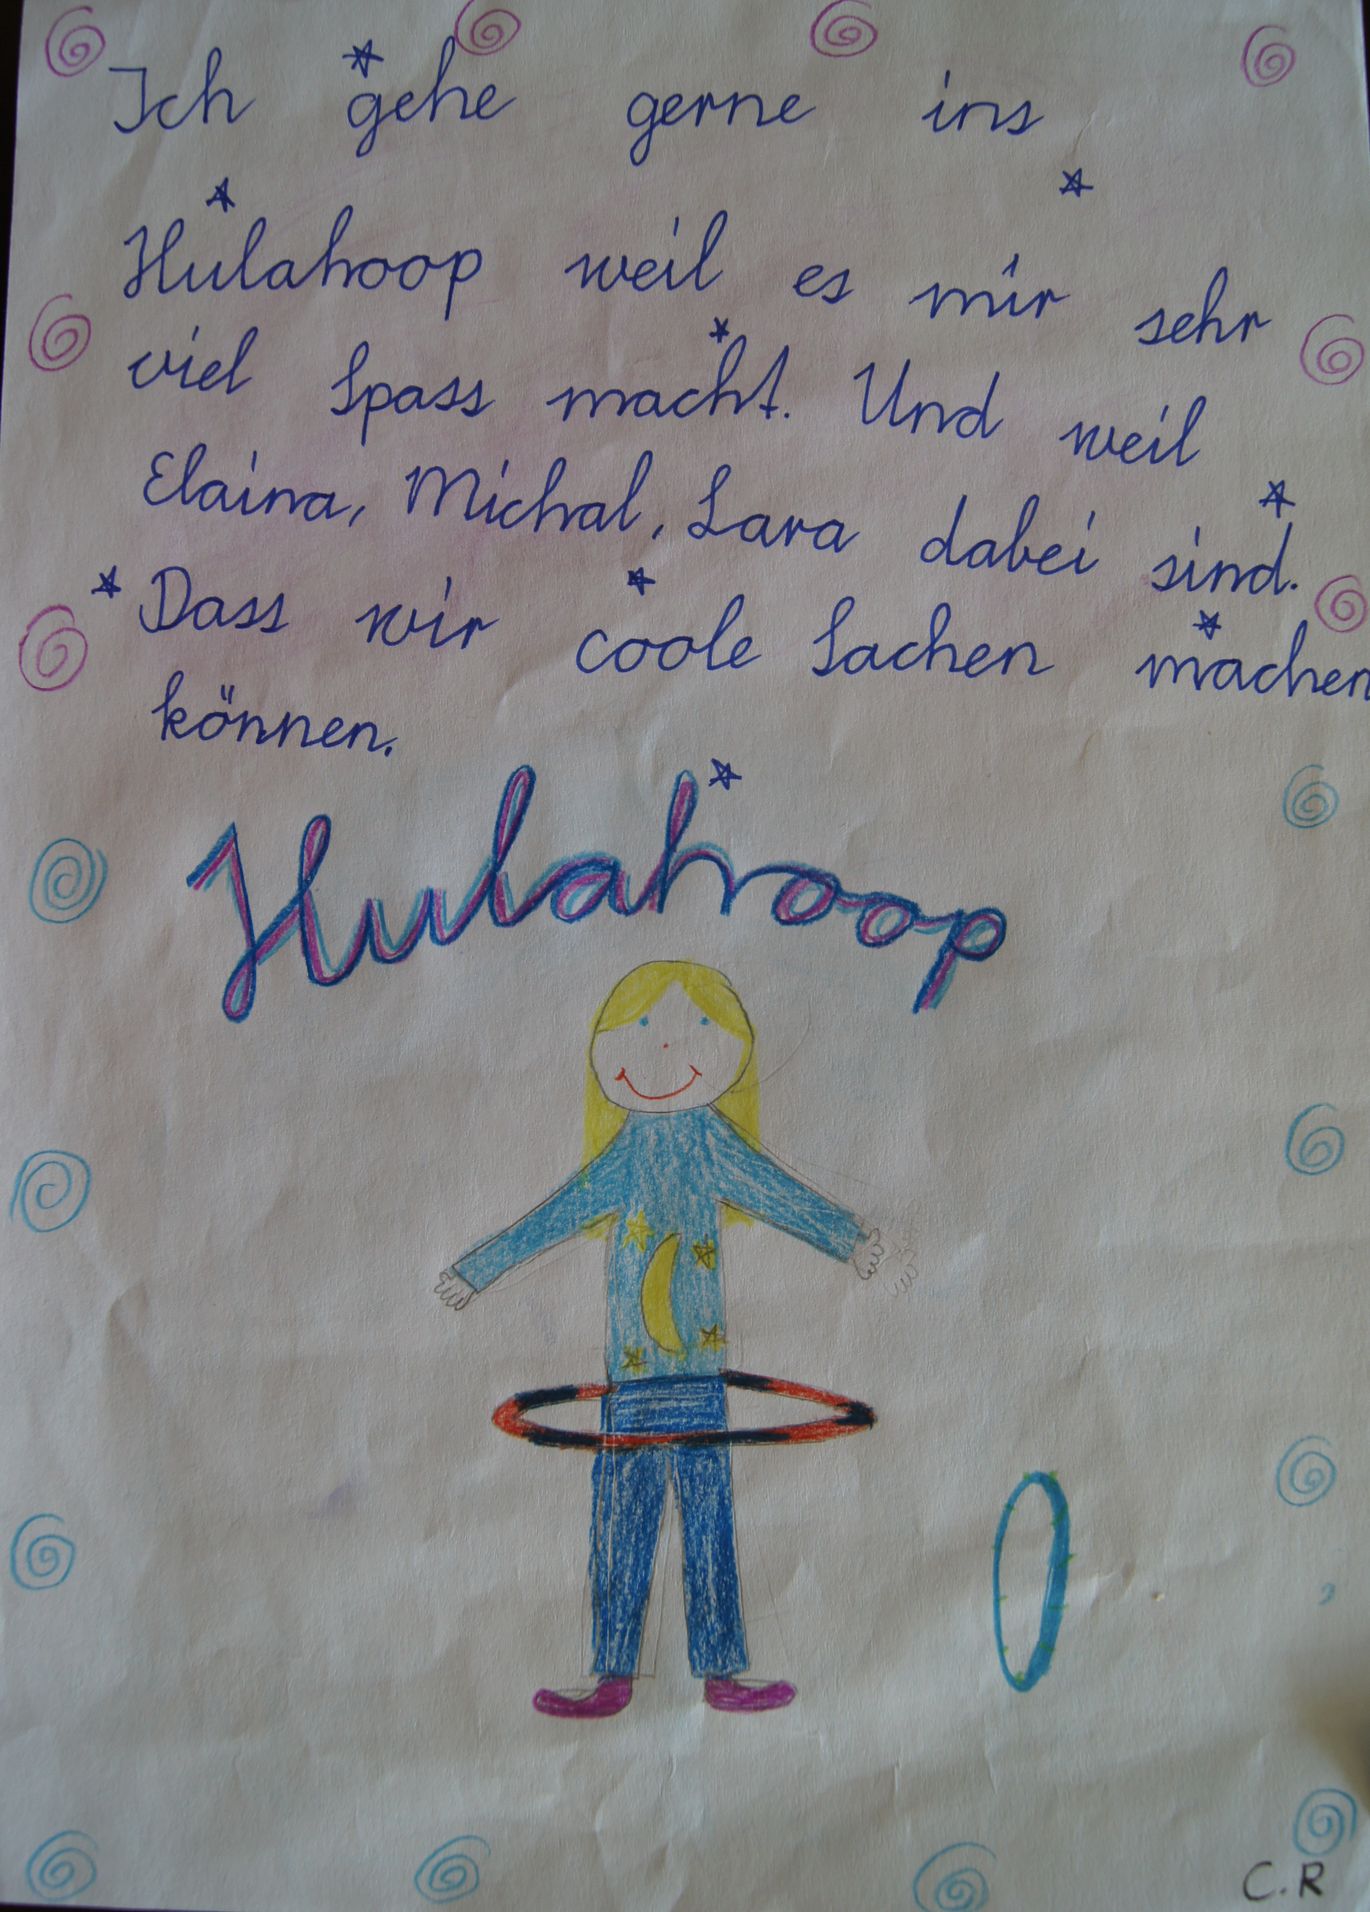 Ich gehe gerne ins
Hulahoop weil es mir sehr
viel Spass macht. Und weil
Elaina, Michal, Lara dabei sind.
Dass wir coole Sachen machen
können.
Hulahoop
C.R